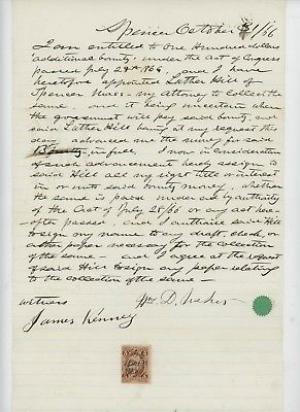 Spencer October 1/66
I am entitled to One Hundred dollars
additional bounty, under the Act of Congress
passed July 28th 1866, and I have
heretofore appointed Luther Hill of
Spencer Mass - my Attorney to collect the
same - and it being uncertain when
the government will pay said bounty, and
said Luther Hill having at my request this
day advanced me the money for said
Bounty in full, I now in consideration
of such advancement hereby assign to
said Hill all my right title or interest
in or unto said bounty money, whether
the same is paid under authority
of the Act of July 28/66 or any act here-
after passed - and I authorize said Hill
to sign my name to any draft, check, or
other paper necessary for the collection
of the same - and I agree at the request
of said Hill to sign any paper relating
to the collection of the same -
witness
Wm D.
James Kenney